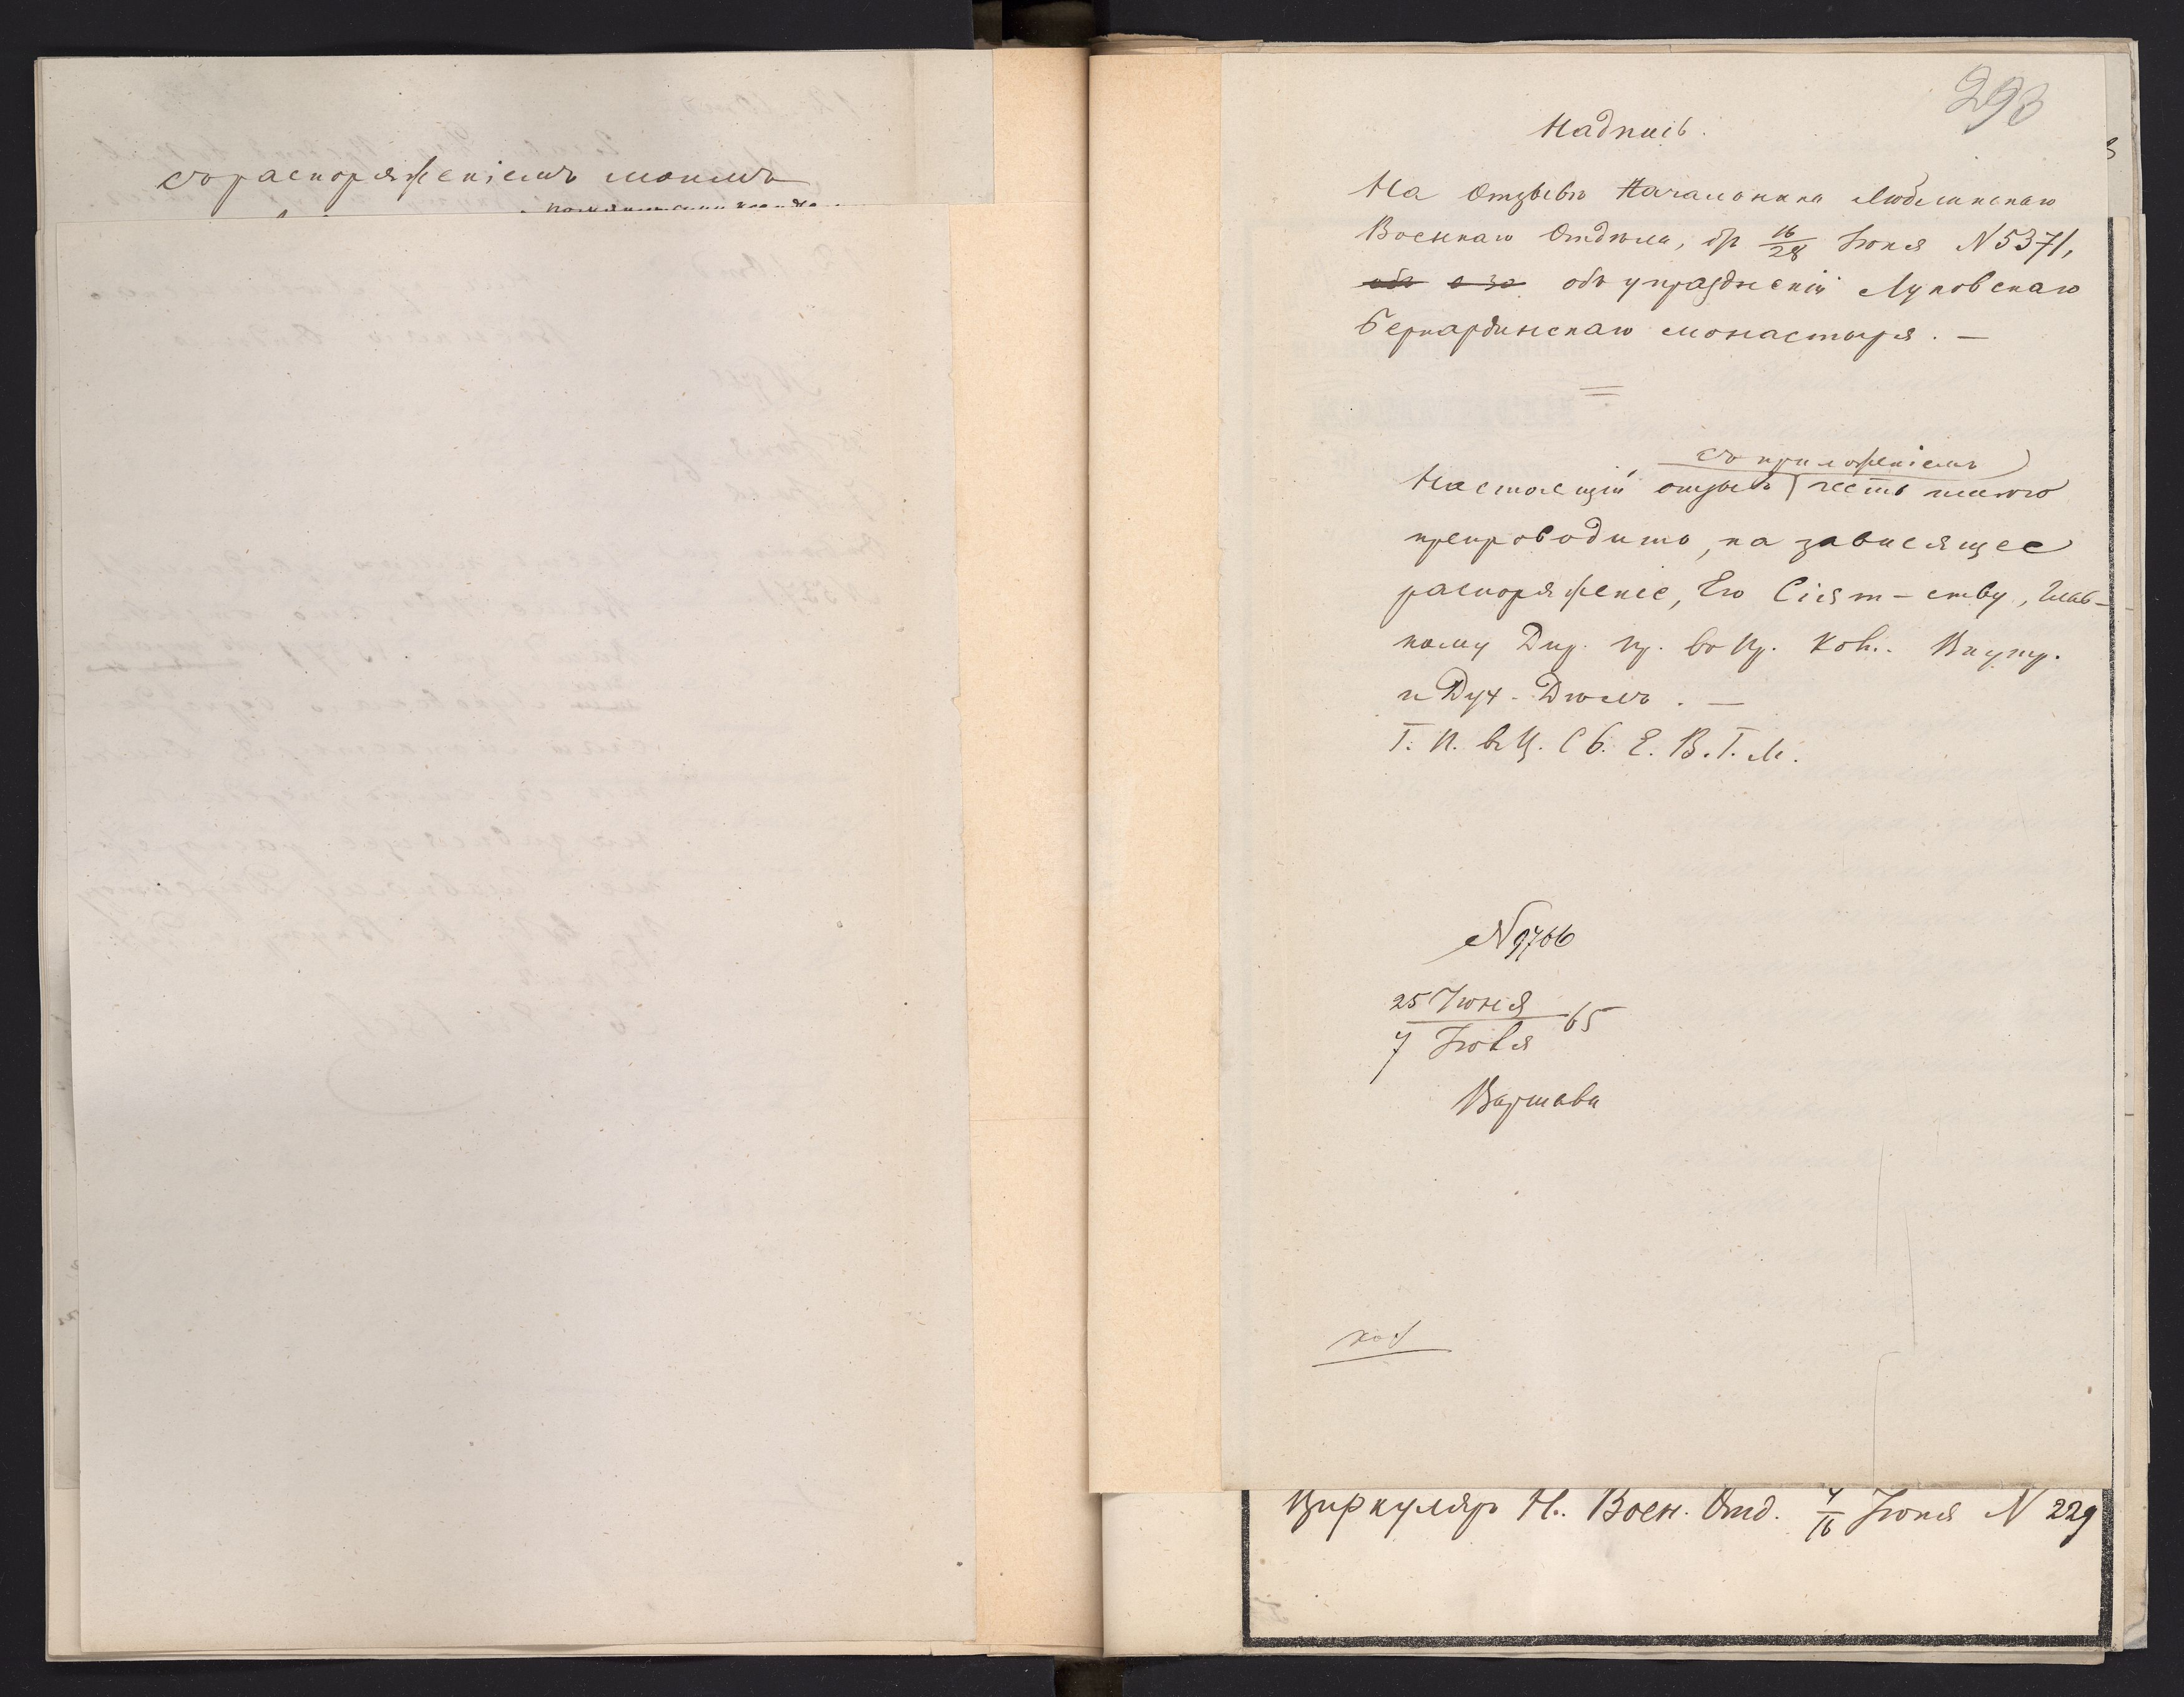 съ распоряженіемъ моимъ
293
Надпись.
На Отзывъ Начальника Люблинскаго
Военнаго Отдѣла, отъ 16/28 Іюня N 5371,
объ упраздненіи Луковскаго
Бернардинскаго монастыря. —
съ приложеніемъ
Настоящій отзывъ честь имѣю
препроводить, на зависящее
распоряженіе, Его Сіят-ству, Глав-
ному Дир. Пр. въ Пр. Ком. Внутр.
и Дух. Дѣлъ. —
Г. П. в Ц. С б. Е. В. Г. М.
N 9766
25 Іюня
7 Іюля 65
Варшава
Циркуляръ Н. Воен. Отд. 4/16 Іюня N 229